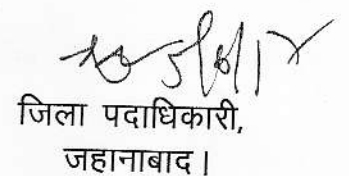 जिला पदाधिकारी,
जहानाबाद।